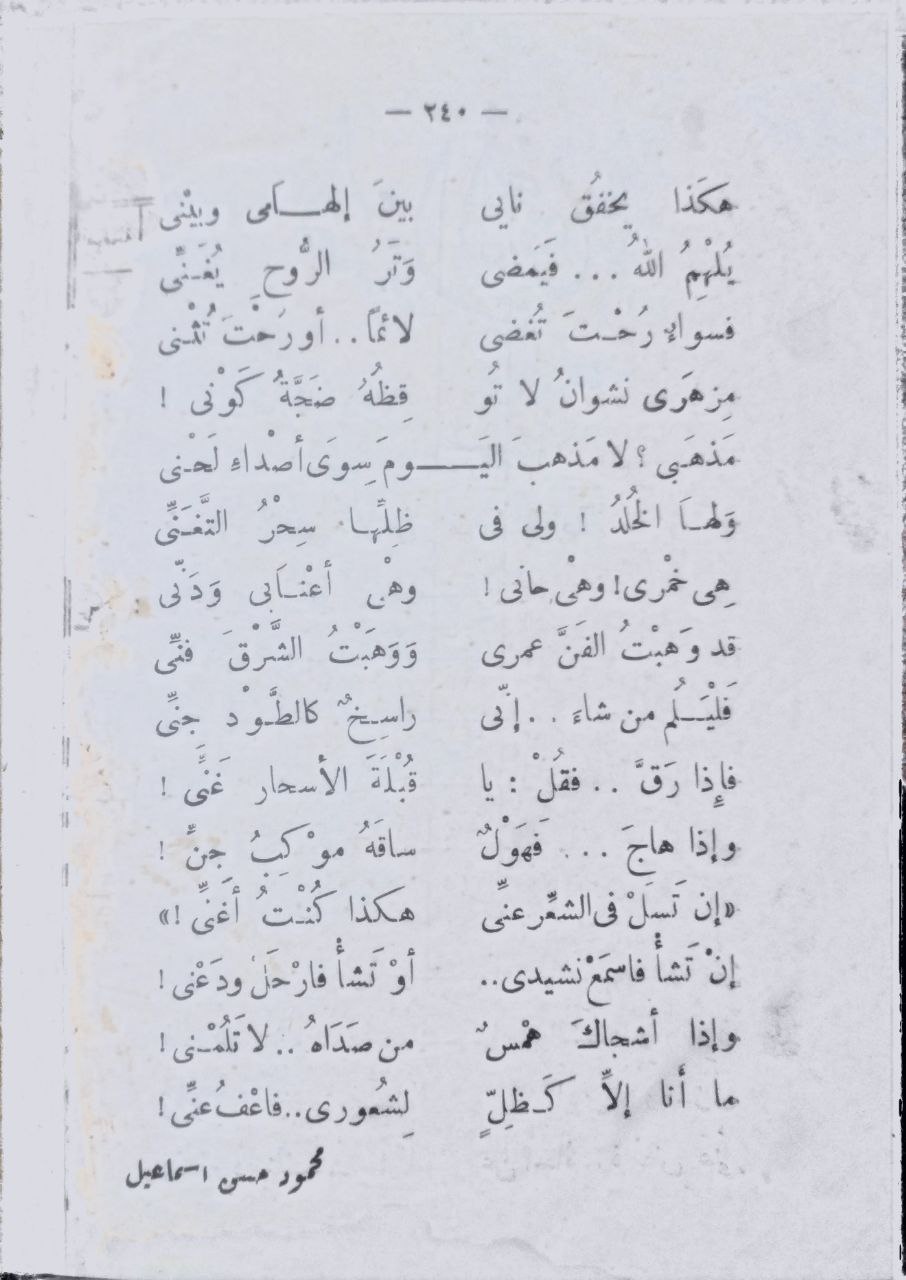 — ٢٤٠ —
هكَذا يخفقُ نايى بينَ إلهـامى وبيْنى
يُلْهِمُ اللهُ ... فَيَمضى وَتَرُ الرُّوحِ يُغَـنِّى
فسواءٍ رُحْـتَ تُغضى لائماً .. أو رُحْتَ تُثْـنى
مِزهَرى نشوانُ لا تُو قِظُهُ ضَجَّةُ كَوْنى !
مَذهَبى ؟ لا مَذهبَ اليَـومَ سِوَى أصْداءِ لَحْنى
وَلهـَا الخُلدُ ! ولى فى ظِلِّهـا سِحْرُ التَّغَـنِّى
هِى خمْرى! وهىْ حانى ! وهىْ أعْنـَابى وَدَنِّى
قد وَهبْتُ الفَنَّ عمرى وَوَهَبْتُ الشَّرْقَ فنِّى
فَلْيَـلُم من شاءَ .. إنّى راسِـخٌ كالطَّـوْد جِنِّى
فإِذا رَقَّ .. فقُلْ : يا قُبْلَةَ الأسحار غَنِّى !
وإذا هاجَ ... فَهَوْلٌ ساقَهُ موْكِبُ جِنِّ !
«إن تَسلَْ فى الشعِّر عنِّى هـكذا كُنْتُ أغَنِّى !»
إنْ تَشأْ فاسمَعْ نشيدى.. أوْ تَشأْ فارْحَلْ ودَعْنى !
وإذا أشجاكَ همْسٌ من صَدَاهُ .. لا تَلُمْـنى !
ما أنا إلاَّ كَـظِلِّ لِشعُورى.. فاعْفُ عنِّى !
محمود حسن اسماعيل